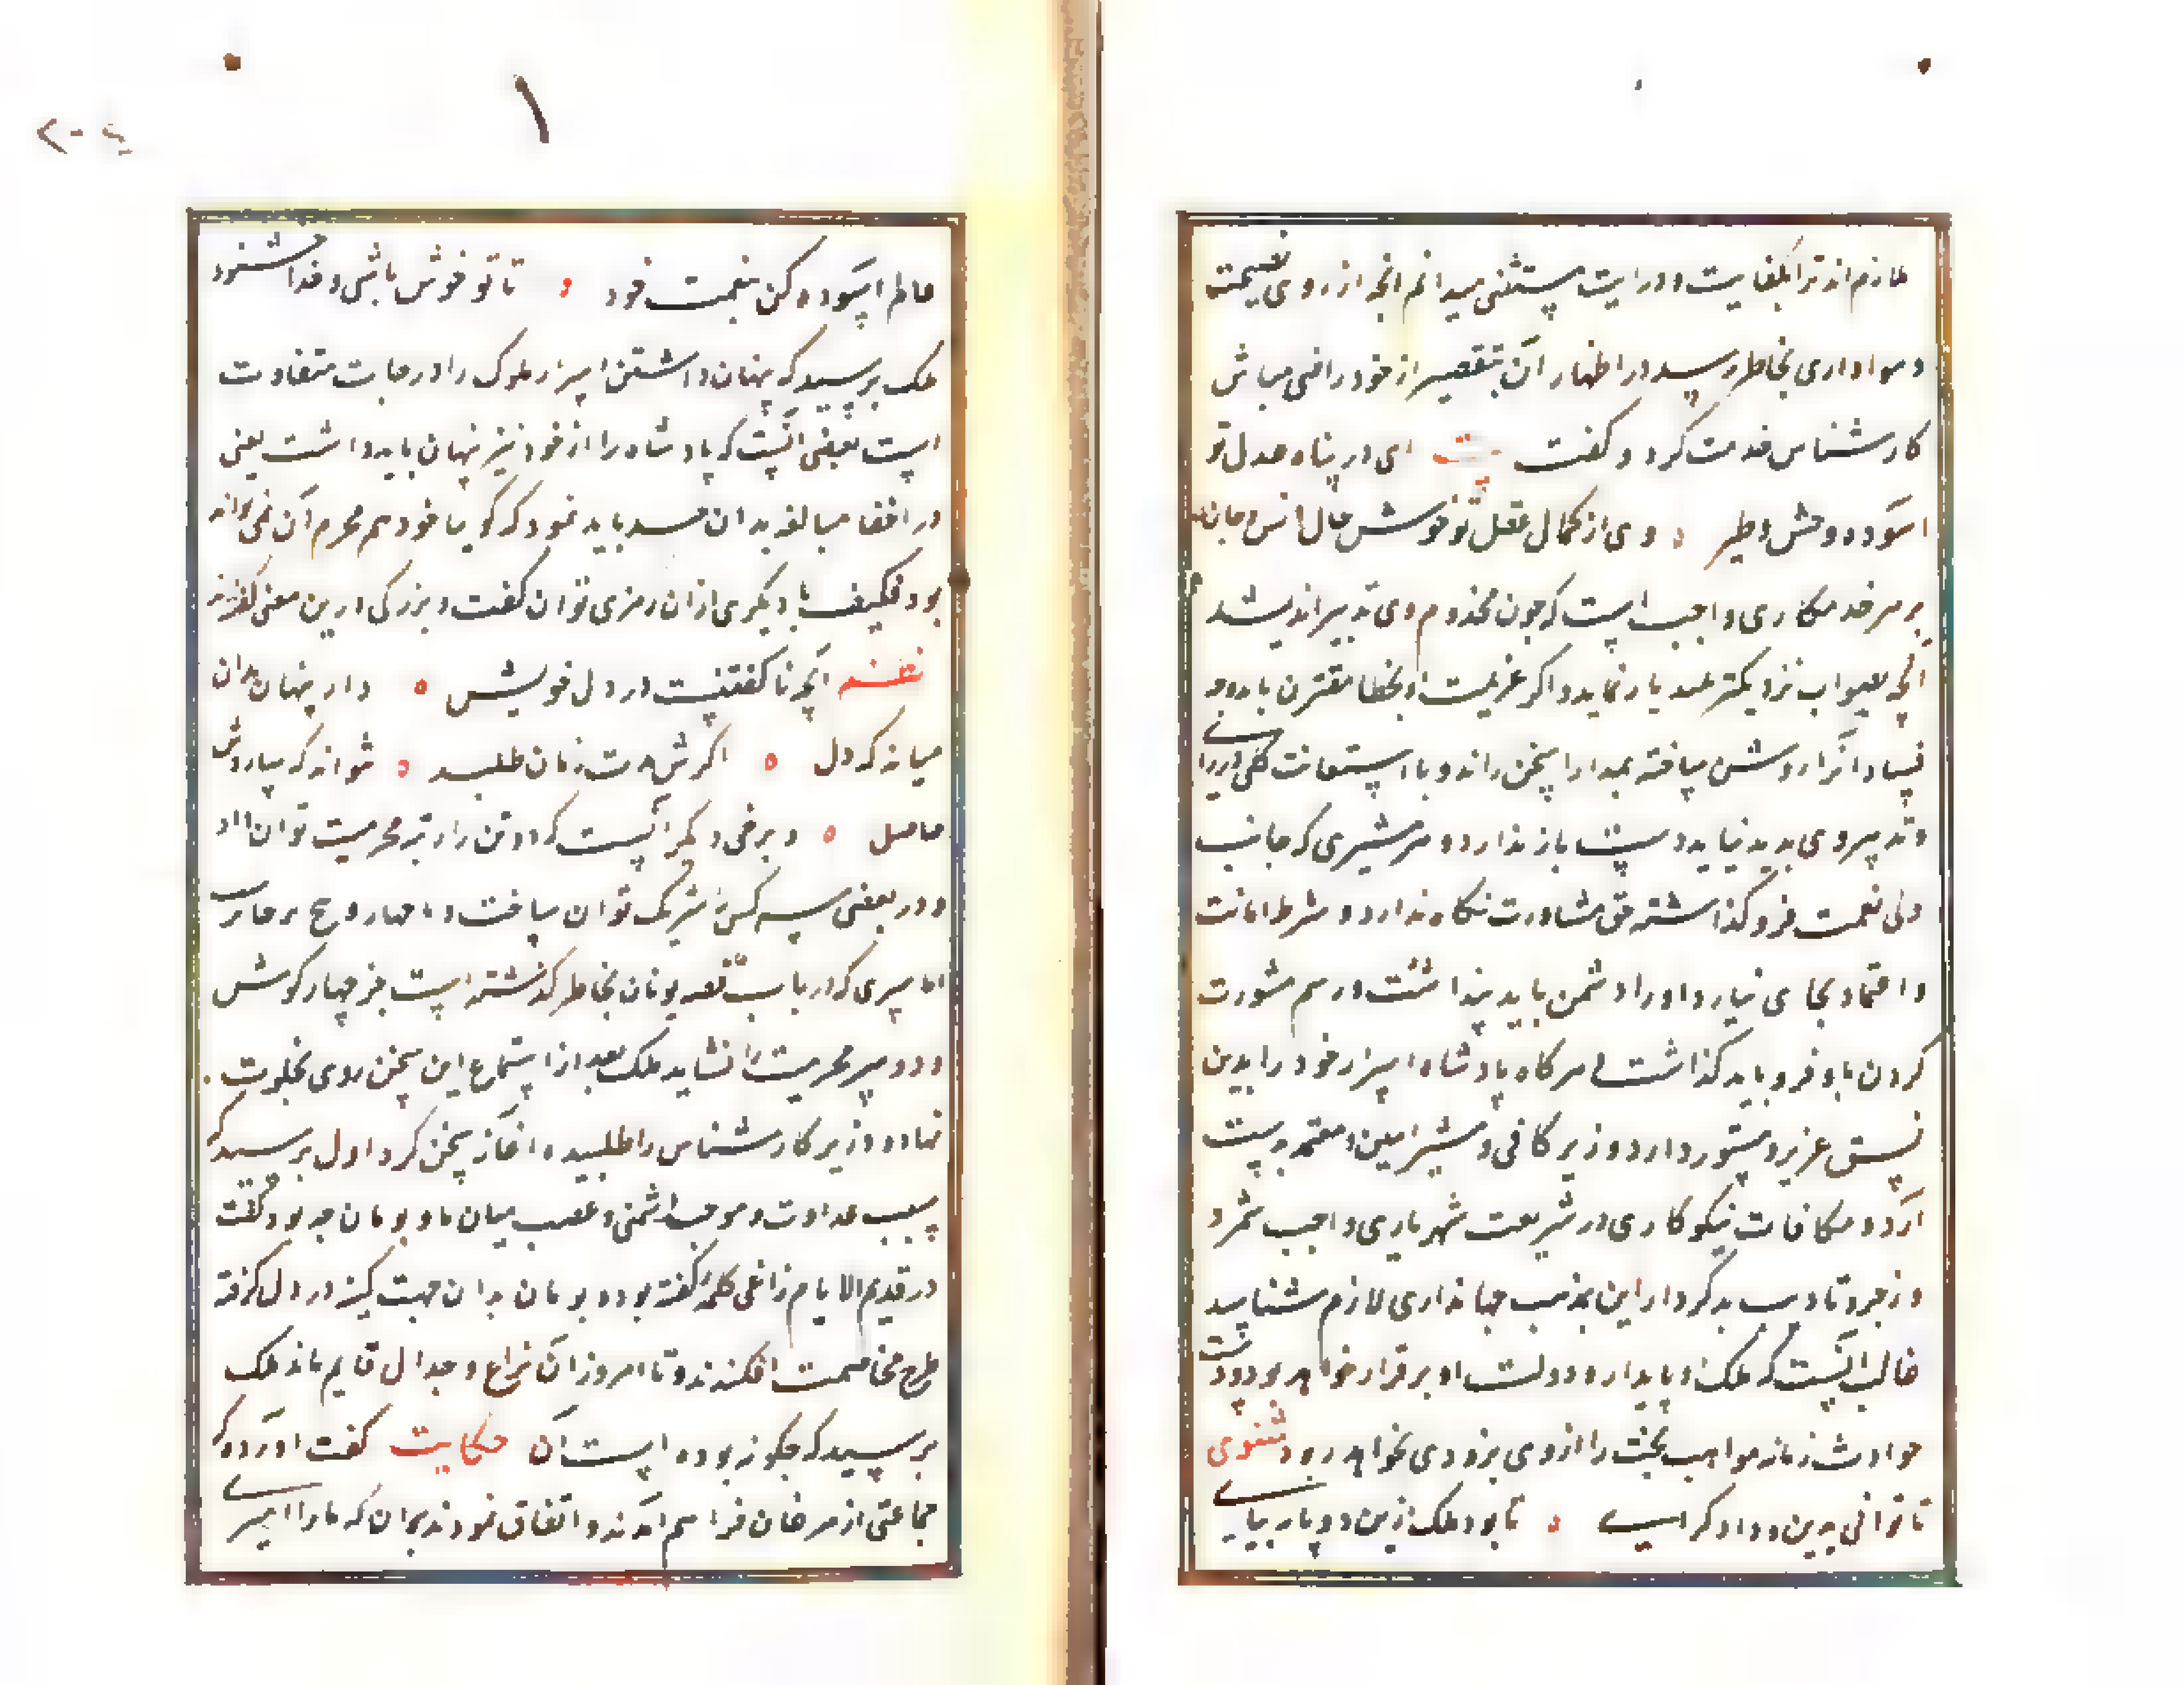 ملازم اند ترا بکفایت و درایت مستثنی میدانم انچه از روی نصیحت
و هواداری بخاطر رسد در اظهار آن بتقصیر از خود راضی مباش
کارشناس خدمت کرد و گفت بیت ای در پناه عدل تو
آسوده وحش و طیر وی از کمال عقل تو خوش حال انس و جان
بر هر خدمتکاری واجب است که چون مخدوم وی تدبیر اندیشد
آنچه بصواب نزدیکتر باشد باز نماید و اگر عزیمت او بخطا مقترن باید وجه
فساد آنرا روشن ساخته بمدارا سخن راند و تا استقامت کلی در رای
و تدبیر وی بدید نیاید دست باز ندارد و هر مشیری که جانب
ولی نعمت فرو گذاشته حق مشاورت نگاه ندارد و شرط امانت
و اعتماد بجای نیارد او را دشمن باید پنداشت و رسم مشورت
کردن با او فرو باید گذاشت هر گاه پادشاه اسرار خود را بدین
نسق عزیز و مستور دارد و وزیر کافی و مشیر امین و معتمد بدست
آرد و مکافات نیکوکاری در شریعت شهریاری واجب شمرد
و زجر و تادیب بدکردار این بمذهب جهانداری لازم شناسد
غالب آنست که ملک او پایدار و دولت او برقرار خواهد بود و دست
حوادث زمانه مواهب بخت را از وی بزودی نخواهد ربود مثنوی
تا توانی بدین و داد گرای تا بود ملک ازین دو پا بر پای
خاطر آسوده کن بنعمت خود تا تو خوش باشی و خدا خشنود
ملک پرسید که پنهان داشتن اسرار ملوک را درجات متفاوت
است بعضی آنست که پادشاه را از خود نیز نهان باید داشت یعنی
در اخفا مبالغه بدان رسد باید نمود که گویا خود هم محرم آن نمی تواند
بود فکیف با دیگری ازان رمزی توان گفت و بزرگی درین معنی گفته
نظم آنچه ناگفتنیست در دل خویش دار پنهان بدان
میانه که دل اگرش مدت زمان طلبد نتواند که سازدش
حاصل و برخی دیگر آنست که دو تن را رتبه محرمیت توان داد
و در بعضی سه کس شریک توان ساخت و تا چهار و پنج هم جایز
اما سری که در باب قصه بومان بخاطر گذشته است جز چهار گوش
و دو سر محرمیت را نشاید ملک بعد از استماع این سخن روی بخلوت
نهاد و وزیر کارشناس را طلبیده آغاز سخن کرد اول پرسید که
سبب عداوت و موجب دشمنی و تعصب میان ما و بومان چه بود گفت
در قدیم الایام زاغی کلمه گفته بود و بومان بدان جهت کینه در دل گرفته
طرح مخاصمت افکندند و تا امروز آن نزاع و جدال قایم ماند ملک
پرسید که چگونه بوده است آن حکایت گفت آورده اند که
جماعتی از مرغان فراهم آمدند و اتفاق نمودند بران که ما را امیری